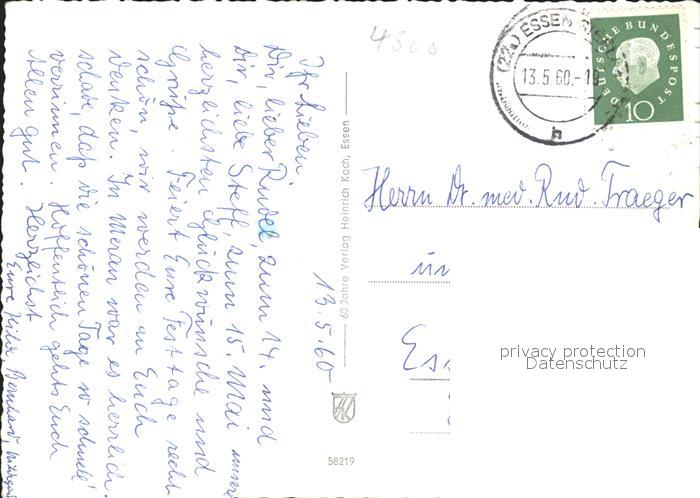 4300
(22a) ESSEN
13.5.60.-19
h
DEUTSCHE BUNDESPOST
10
Ihr Lieben
13.5.60
Dir, lieber Rudel, zum 14. und
Dir, liebe Steff, zum 15. Mai unsere
herzlichsten Glückwünsche und
Grüße. Feiert Eure Festtage recht
schön, wir werden an Euch
denken. In Meran war es herrlich.
schade, daß die schönen Tage so schnell
verrinnen. Hoffentlich gehts Euch
Allen gut. Herzlichst
Eure
60 Jahre Verlag Heinrich Koch, Essen
HK
58219
Herrn Dr. med. Rud. Traeger
in
Ess
privacy protection
Datenschutz